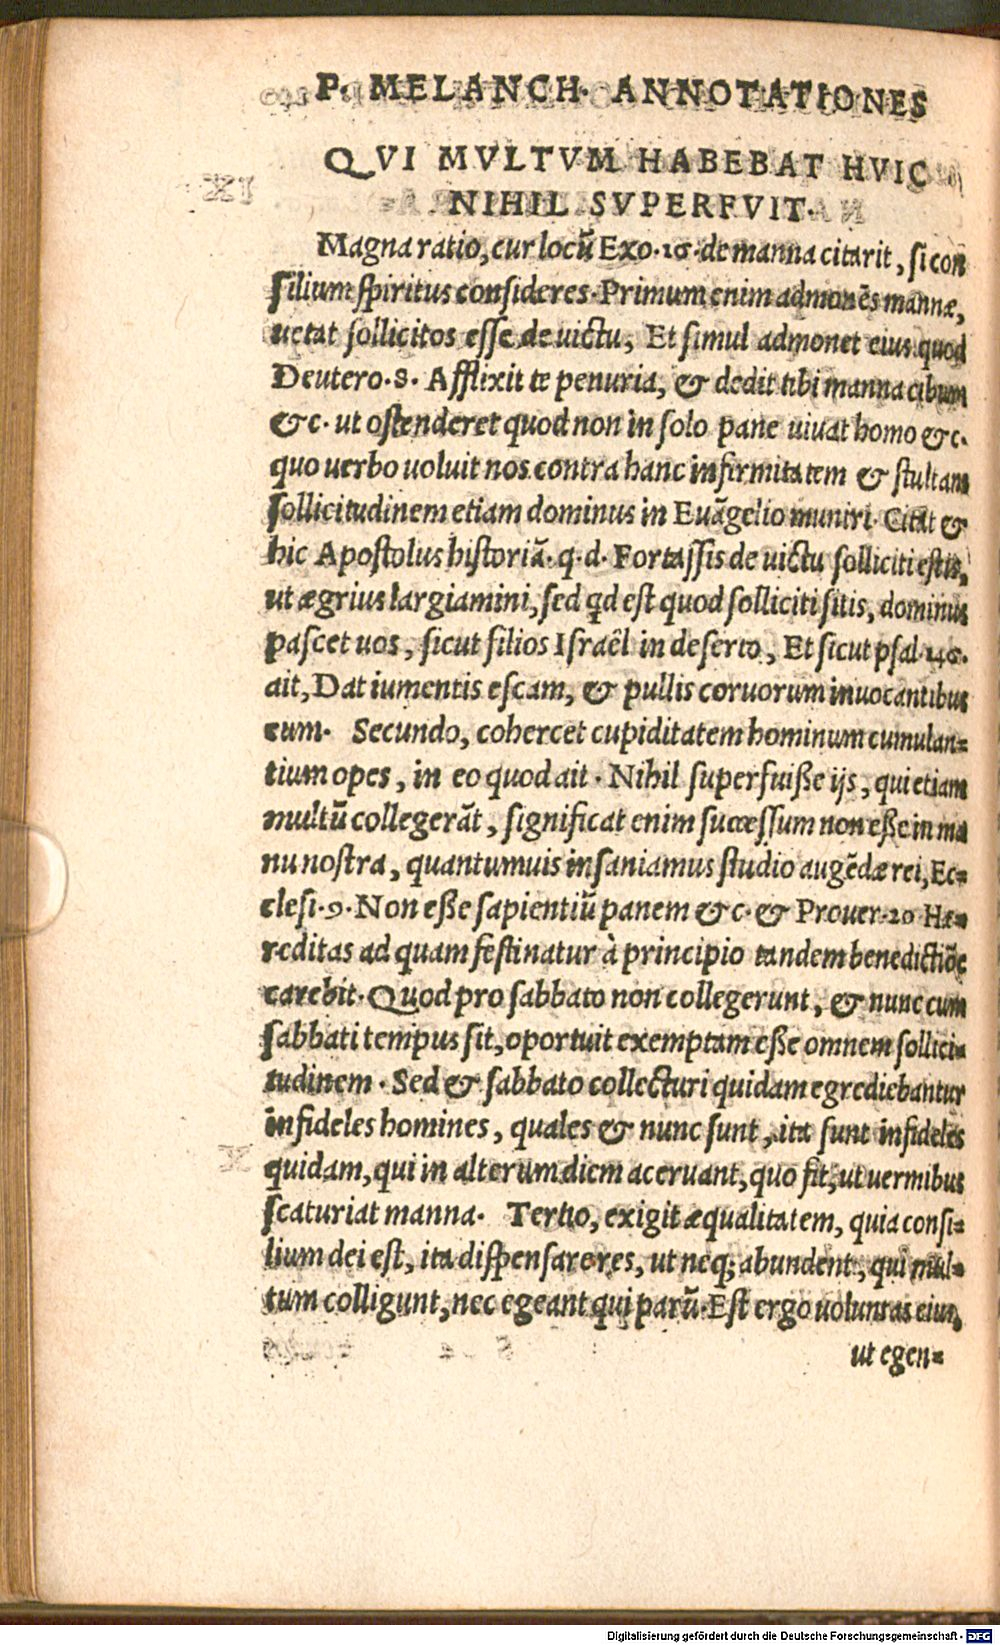 P. MELANCH. ANNOTATIONES
QVI MVLTVM HABEBAT HVIC
NIHIL SVPERFVIT.
Magna ratio, cur locũ Exo. 16. de manna citarit, si con
silium spiritus consideres. Primum enim admonẽs mannæ,
uetat sollicitos esse de uictu, Et simul admonet eius quod
Deutero. 8. Afflixit te penuria, & dedit tibi manna cibum
&c. ut ostenderet quod non in solo pane uiuat homo &c.
quo uerbo uoluit nos contra hanc infirmitatem & stultam
sollicitudinem etiam dominus in Euãgelio muniri. Citat &
hic Apostolus historiã. q. d. Fortassis de uictu solliciti estis,
ut ægrius largiamini, sed qd est quod solliciti sitis, dominus
pascet uos, sicut filios Israêl in deserto, Et sicut psal. 146.
ait, Dat iumentis escam, & pullis coruorum inuocantibus
eum. Secundo, cohercet cupiditatem hominum cumulan=
tium opes, in eo quod ait. Nihil superfuiße ijs, qui etiam
multũ collegerãt, significat enim successum non eße in ma
nu nostra, quantumuis insaniamus studio augẽdæ rei, Ec=
clesi. 9. Non eße sapientiũ panem &c. & Prouer. 20 Hæ=
reditas ad quam festinatur à principio tandem benedictiõe
carebit. Quod pro sabbato non collegerunt, & nunc cum
sabbati tempus sit, oportuit exemptam eße omnem sollici=
tudinem. Sed & sabbato collecturi quidam egrediebantur
infideles homines, quales & nunc sunt, ita sunt infideles
quidam, qui in alterum diem aceruant, quo fit, ut uermibus
scaturiat manna. Tertio, exigit æqualitatem, quia consi=
lium dei est, ita dispensare res, ut neq; abundent, qui mul=
tum colligunt, nec egeant qui parũ. Est ergo uoluntas eius,
ut egen=
Digitalisierung gefördert durch die Deutsche Forschungsgemeinschaft - DFG